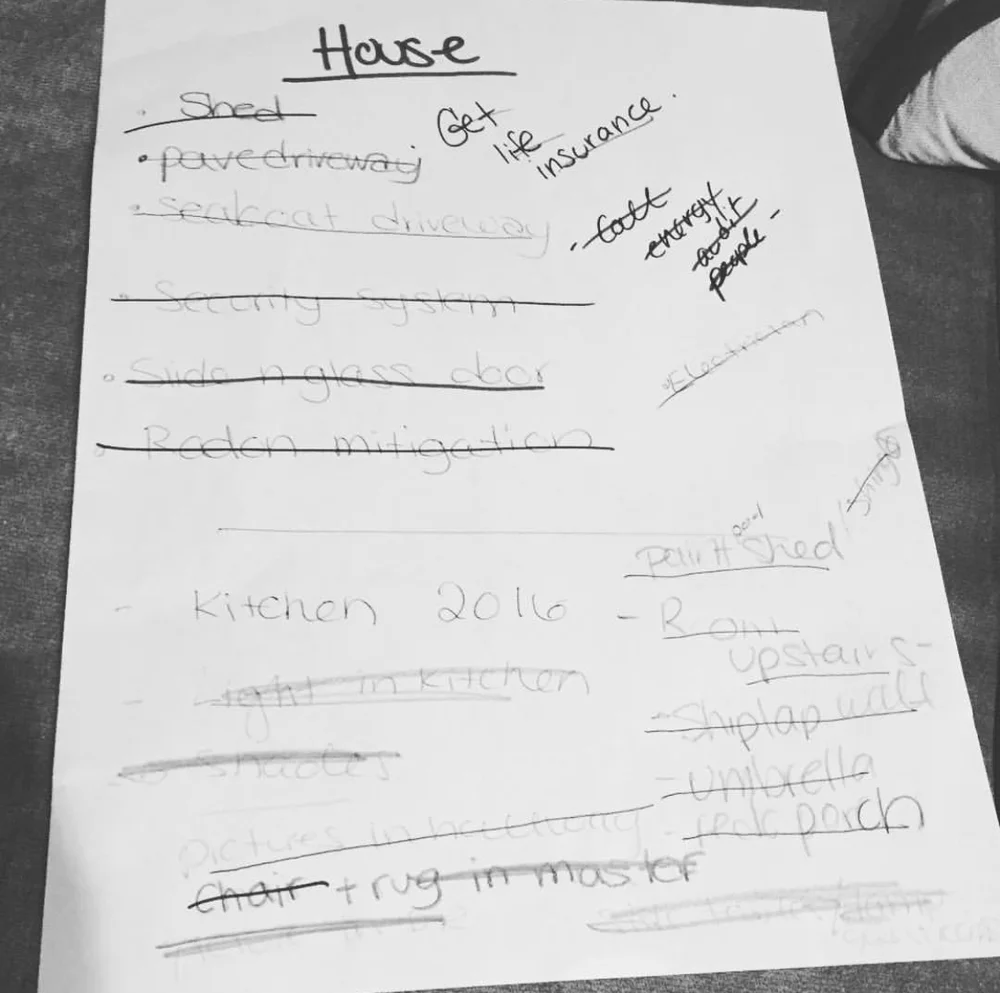 House
Shed
Get
life
insurance.
• pave driveway
• sealcoat driveway
- Call
energy
audit
people -
• Security system
• Electrician
glass door
Radon mitigation
paint shed
- Kitchen 2016
upstairs-
- light in kitchen
- Shiplap wall
shades
- umbrella
pictures in hallway
porch
chair + rug in master